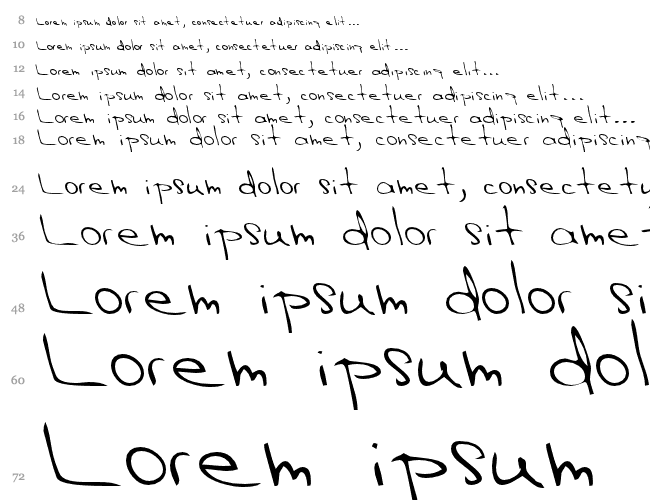 8 Lorem ipsum dolor sit amet, consectetuer adipiscing elit...
10 Lorem ipsum dolor sit amet, consectetuer adipiscing elit...
12 Lorem ipsum dolor sit amet, consectetuer adipiscing elit...
14 Lorem ipsum dolor sit amet, consectetuer adipiscing elit...
16 Lorem ipsum dolor sit amet, consectetuer adipiscing elit...
18 Lorem ipsum dolor sit amet, consectetuer adipiscing
24 Lorem ipsum dolor sit amet, consectetu
36 Lorem ipsum dolor sit ame
48 Lorem ipsum dolor si
60 Lorem ipsum dol
72 Lorem ipsum